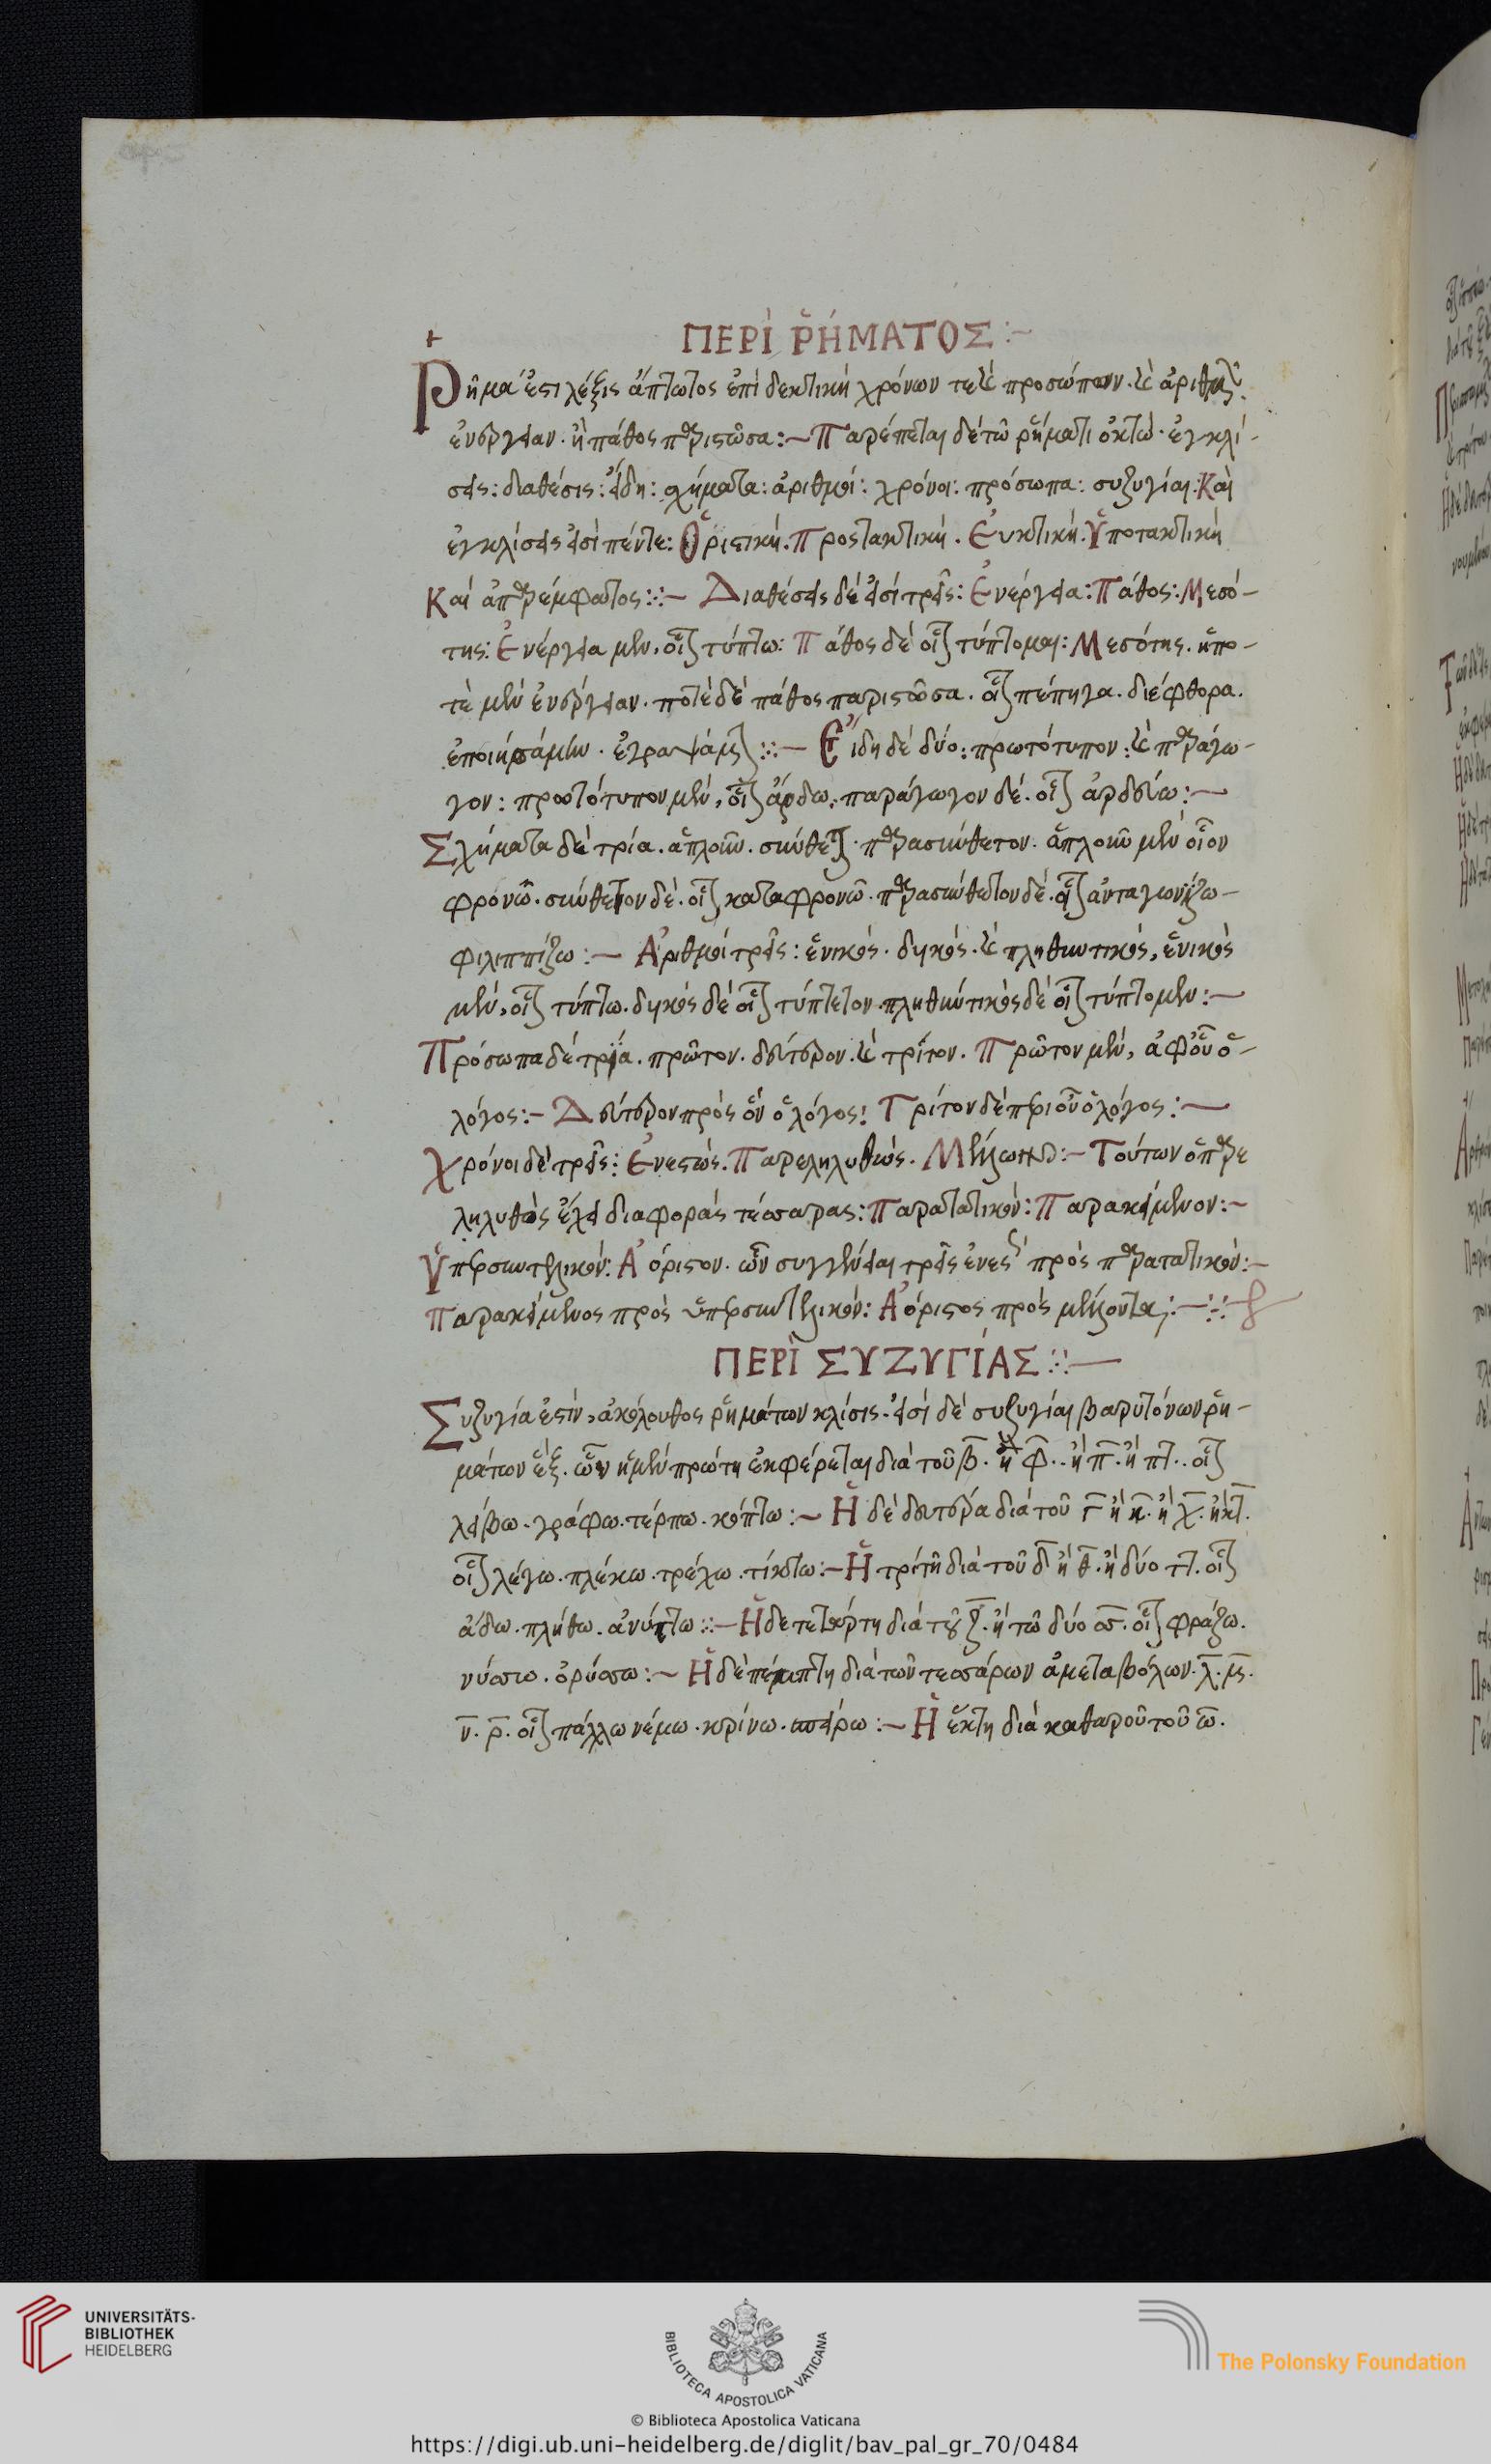 ΠΕΡῚ ῬΉΜΑΤΟΣ :~
Ῥῆμά ἐστι λέξις ἄπτωτος ἐπιδεκτικὴ χρόνων τε καὶ προσώπων· καὶ ἀριθμῶν·
ἐνέργειαν· ἢ πάθος παριστῶσα :~ Παρέπεται δὲ τῶ ῥήματι ὀκτώ· ἐγκλί-
σεις : διαθέσις : εἴδη : σχήματα : ἀριθμοί : χρόνοι : πρόσωπα : συζυγίαι : Καὶ
ἐγκλίσεις εἰσὶ πέντε : Ὁριστική · Προστακτική · Εὐκτική · Ὑποτακτικὴ
Καὶ ἀπαρέμφατος :~ Διαθέσεις δέ εἰσι τρεῖς : Ἐνέργεια : Πάθος : Μεσό-
της : Ἐνέργεια μὲν, οἷον τύπτω : Πάθος δὲ οἷον τύπτομαι : Μεσότης · ἥ πο-
τὲ μὲν ἐνέργειαν · ποτὲ δὲ πάθος παριστῶσα · οἷον πέπηγα · διέφθορα ·
ἐποιησάμην · ἐγραψάμην :~ Εἴδη δὲ δύο : πρωτότυπον : καὶ παράγω-
γον : προτότυπον μὲν, οἷον ἄρδω, παράγωγον δέ · οἷον ἀρδεύω :~
Σχήματα δὲ τρία · ἁπλοῦν · σύνθετον · παρασύνθετον · ἁπλοῦν μὲν οἷον
φρονῶ · σύνθετον δέ · οἷον καταφρονῶ · παρασύνθετον δέ · οἷον ἀνταγωνίζω -
φιλιππίζω :~ Ἀριθμοὶ τρεῖς : ἑνικός · δυικός · καὶ πληθυντικός, ἑνικὸς
μὲν, οἷον τύπτω · δυικὸς δὲ οἷον τύπτετον · πληθυντικὸς δὲ οἷον τύπτομεν :~
Πρόσωπα δὲ τρία · πρῶτον · δεύτερον · καὶ τρίτον · Πρῶτον μὲν, ἀφ' οὗ ὁ -
λόγος :~ Δεύτερον πρὸς ὃν ὁ λόγος : Τρίτον δὲ περὶ οὗ ὁ λόγος :~
Χρόνοι δὲ τρεῖς : Ἐνεστώς · Παρεληλυθώς · Μέλλων :~ Τούτων ὁ παρε
ληλυθὼς ἔχει διαφορὰς τέσσαρας : Παρατατικόν : Παρακείμενον :~
Ὑπερσυντελικόν : Ἀόριστον · ὧν συγγένειαι τρεῖς ἐνεστ πρὸς παρατατικόν :~
Παρακείμενος πρὸς ὑπερσυντελικόν : Ἀόριστος πρὸς μέλλοντα :~
ΠΕΡῚ ΣΥΖΥΓΊΑΣ :~
Συζυγία ἐστὶν, ἀκόλουθος ῥημάτων κλίσις · εἰσὶ δὲ συζυγίαι βαρυτόνων ῥη-
μάτων ἕξ · ὧν ἡ μὲν πρώτη ἐκφέρεται διὰ τοῦ β · ἢ φ · ἢ π · ἢ πτ · οἷον
λείβω · γράφω · τέρπω · κόπτω :~ Ἡ δὲ δευτερά διὰ τοῦ γ ἢ κ · ἢ χ · ἢ κτ ·
οἷον λέγω · πλέκω · τρέχω · τίκτω :~ Ἡ τρίτη διὰ τοῦ δ ἢ θ · ἢ δύο ττ · οἷον
ἄδω · πλήθω · ἀνύττω :~ Ἡ δὲ τετάρτη διὰ τοῦ ζ · ἢ τῶ δύο σσ · οἷον φράζω ·
νύσσω · ὀρύσσω :~ Ἡ δὲ πέμπτη διὰ τῶν τεσσάρων ἀμεταβόλων · λ · μ ·
ν · ρ · οἷον πάλλω νέμω · κρίνω · σπείρω :~ Ἡ ἕκτη διὰ καθαροῦ τοῦ ω ·
UNIVERSITÄTS-
BIBLIOTHEK
HEIDELBERG
BIBLIOTECA APOSTOLICA VATICANA
The Polonsky Foundation
© Biblioteca Apostolica Vaticana
https://digi.ub.uni-heidelberg.de/diglit/bav_pal_gr_70/0484